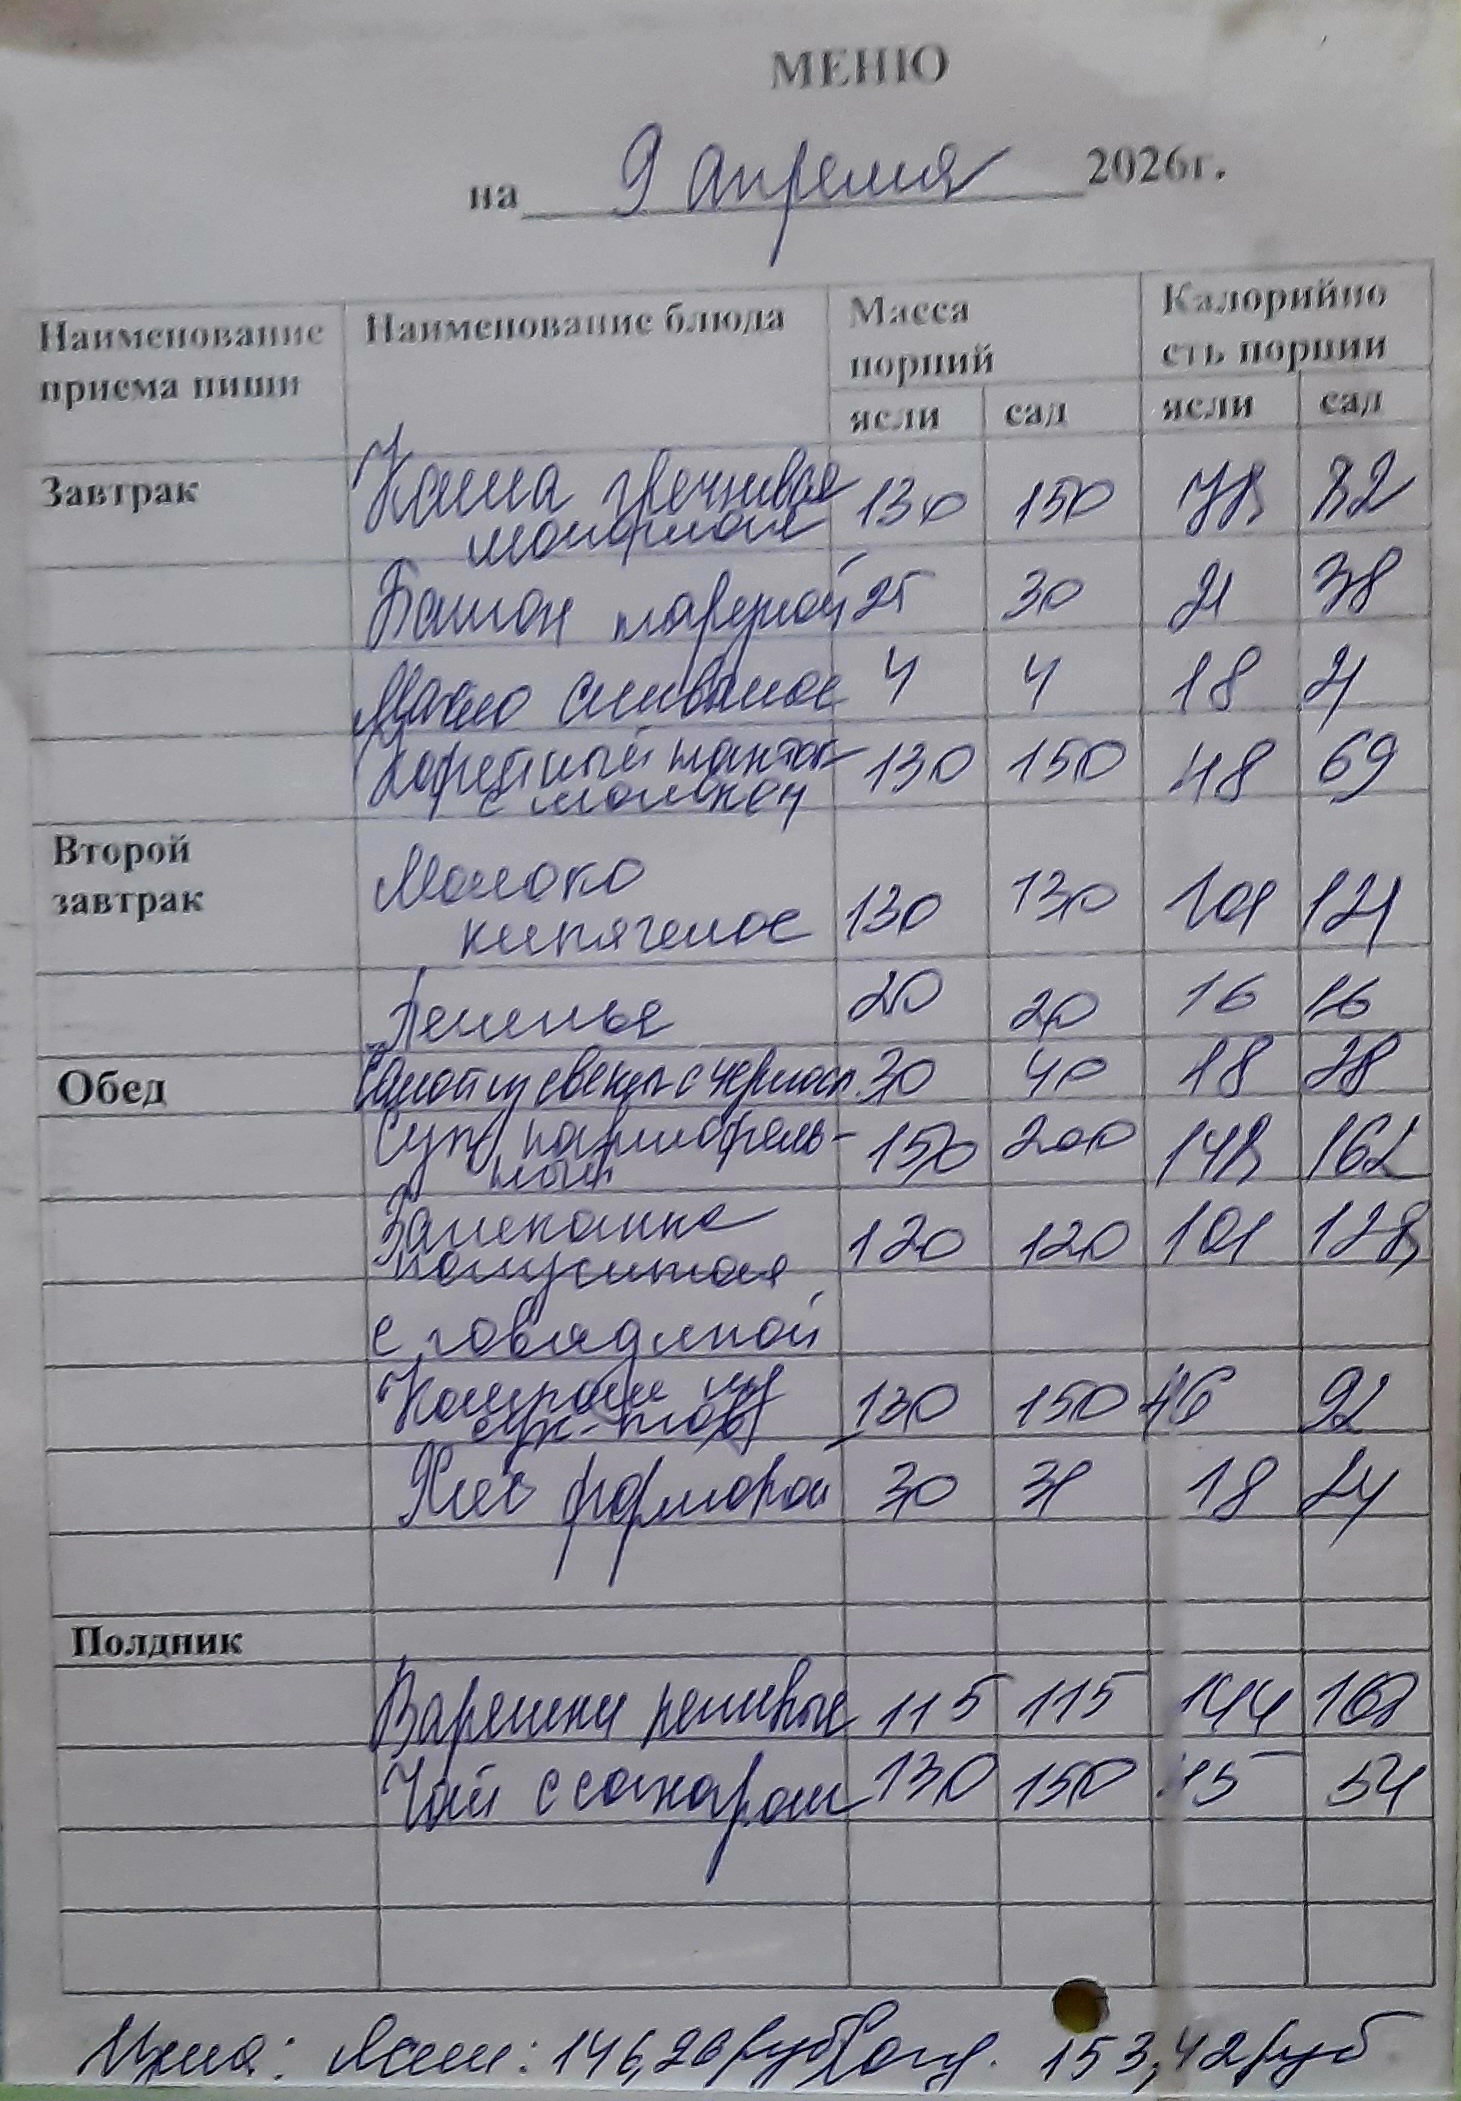 МЕНЮ
на 9 апреля 2026г.
Наименование приема пищи Наименование блюда Масса порций Калорийно сть порции
ясли сад ясли сад
Завтрак Каша гречневая 130 150 78 82
молочная
Батон нарезной 25 30 21 38
Масло сливочное 4 4 18 21
Кофейный напиток 130 150 48 69
с молоком
Второй завтрак Молоко
кипяченое 130 130 101 121
Печенье 20 20 16 16
Обед Салат из свеклы с чернос. 30 40 18 28
Суп картофель- 150 200 148 162
ный
Запеканка 120 120 101 128
капустная
с говядиной
Компот из 130 150 46 92
сух-тов
Хлеб формовой 30 18 24
Полдник
Вареники ленивые 115 115 144 168
Чай с сахаром 130 150 45 54
Цена: Ясли: 146,26 руб Сад. 153,42 руб